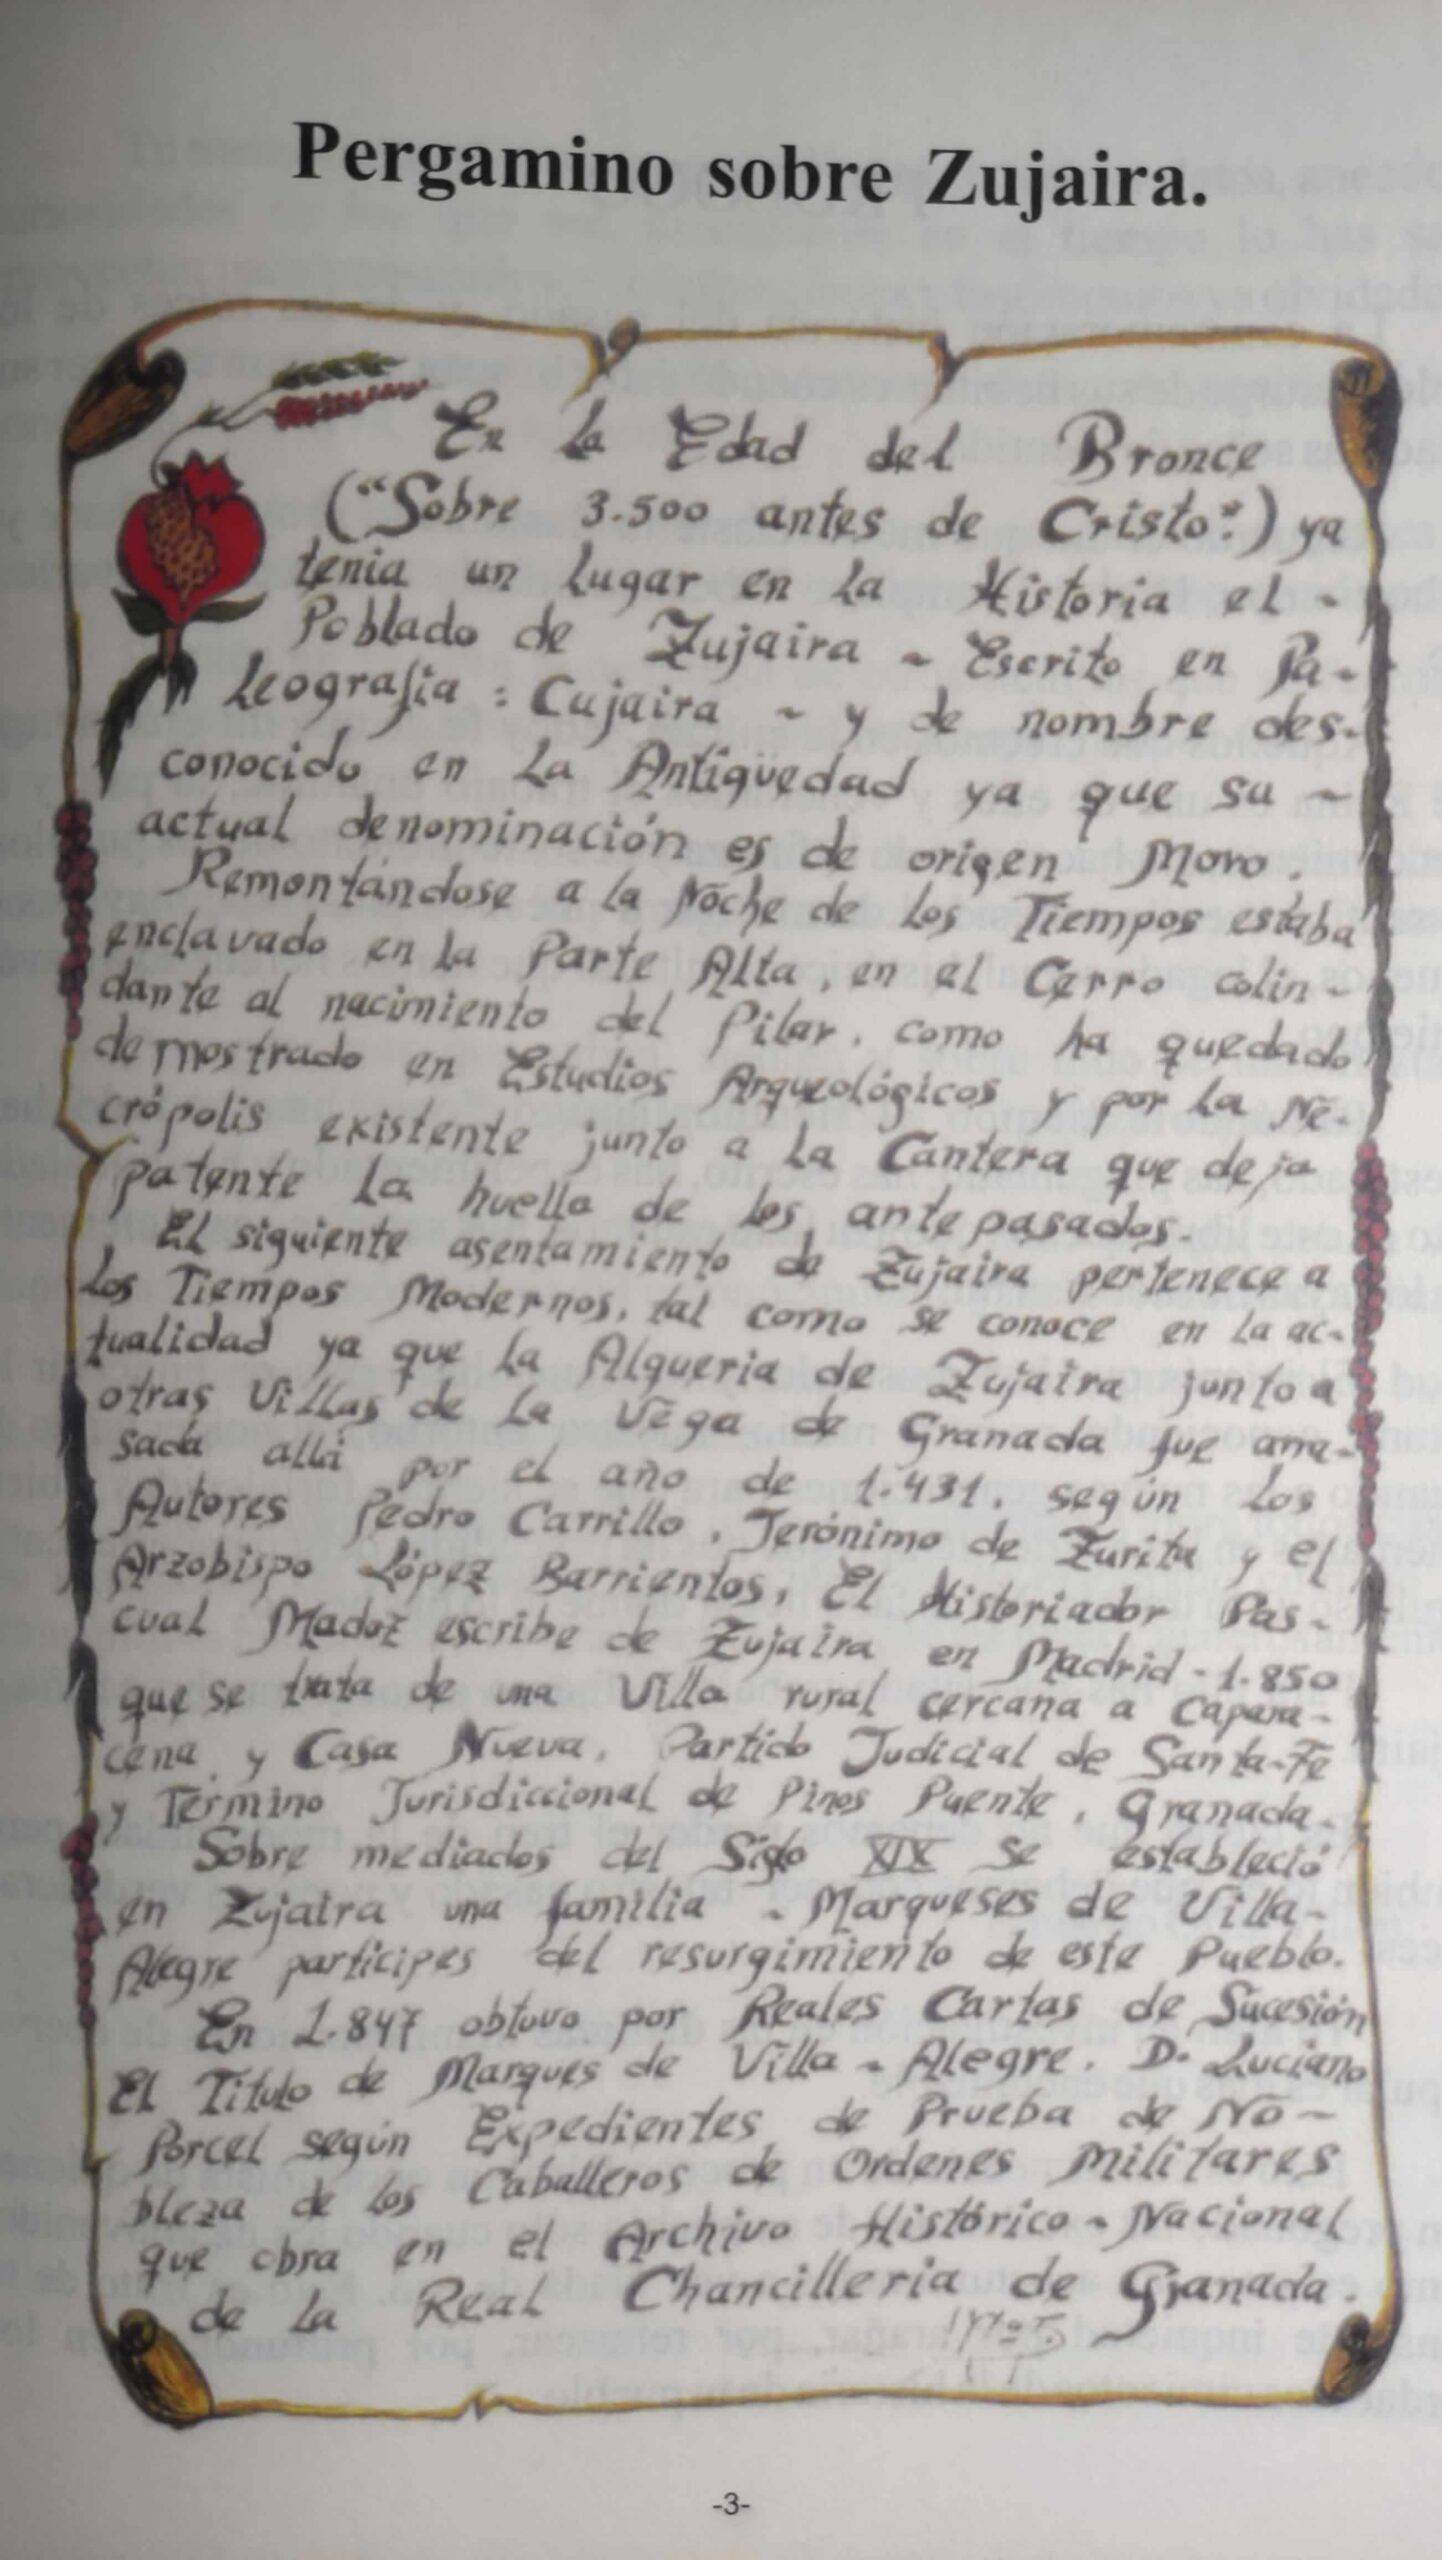 Pergamino sobre Zujaira.
En la Edad del Bronce
("Sobre 3.500 antes de Cristo".) ya
tenia un lugar en la Historia el -
Poblado de Zujaira ~ Escrito en Pa-
leografia : Cujaira ~ y de nombre des-
conocido en la Antigüedad ya que su ~
actual denominación es de origen Moro.
Remontándose a la Noche de los Tiempos estaba
enclavado en la Parte Alta, en el Cerro colin-
dante al nacimiento del Pilar, como ha quedado
demostrado en Estudios Arqueológicos y por la Ne-
crópolis existente junto a la Cantera que deja
patente la huella de los antepasados.
El siguiente asentamiento de Zujaira pertenece a
los Tiempos Modernos, tal como se conoce en la ac-
tualidad ya que la Alqueria de Zujaira junto a
otras Villas de la Vega de Granada fue arra-
sada allá por el año de 1.431, según los
Autores Pedro Carrillo, Jerónimo de Zurita y el
Arzobispo López Barrientos, El Historiador Pas-
cual Madoz escribe de Zujaira en Madrid - 1.850
que se trata de una Villa rural cercana a Capara-
cena y Casa Nueva, Partido Judicial de Santa-Fe
y Término Jurisdiccional de Pinos Puente, Granada.
Sobre mediados del Siglo XIX se estableció
en Zujaira una familia ~ Marqueses de Villa-
Alegre participes del resurgimiento de este Pueblo.
En 1.847 obtuvo por Reales Cartas de Sucesión
El Titulo de Marques de Villa ~ Alegre. D. Luciano
Porcel según Expedientes de Prueba de No-
bleza de los Caballeros de Ordenes Militares
que obra en el Archivo Histórico ~ Nacional
de la Real Chancilleria de Granada.
-3-